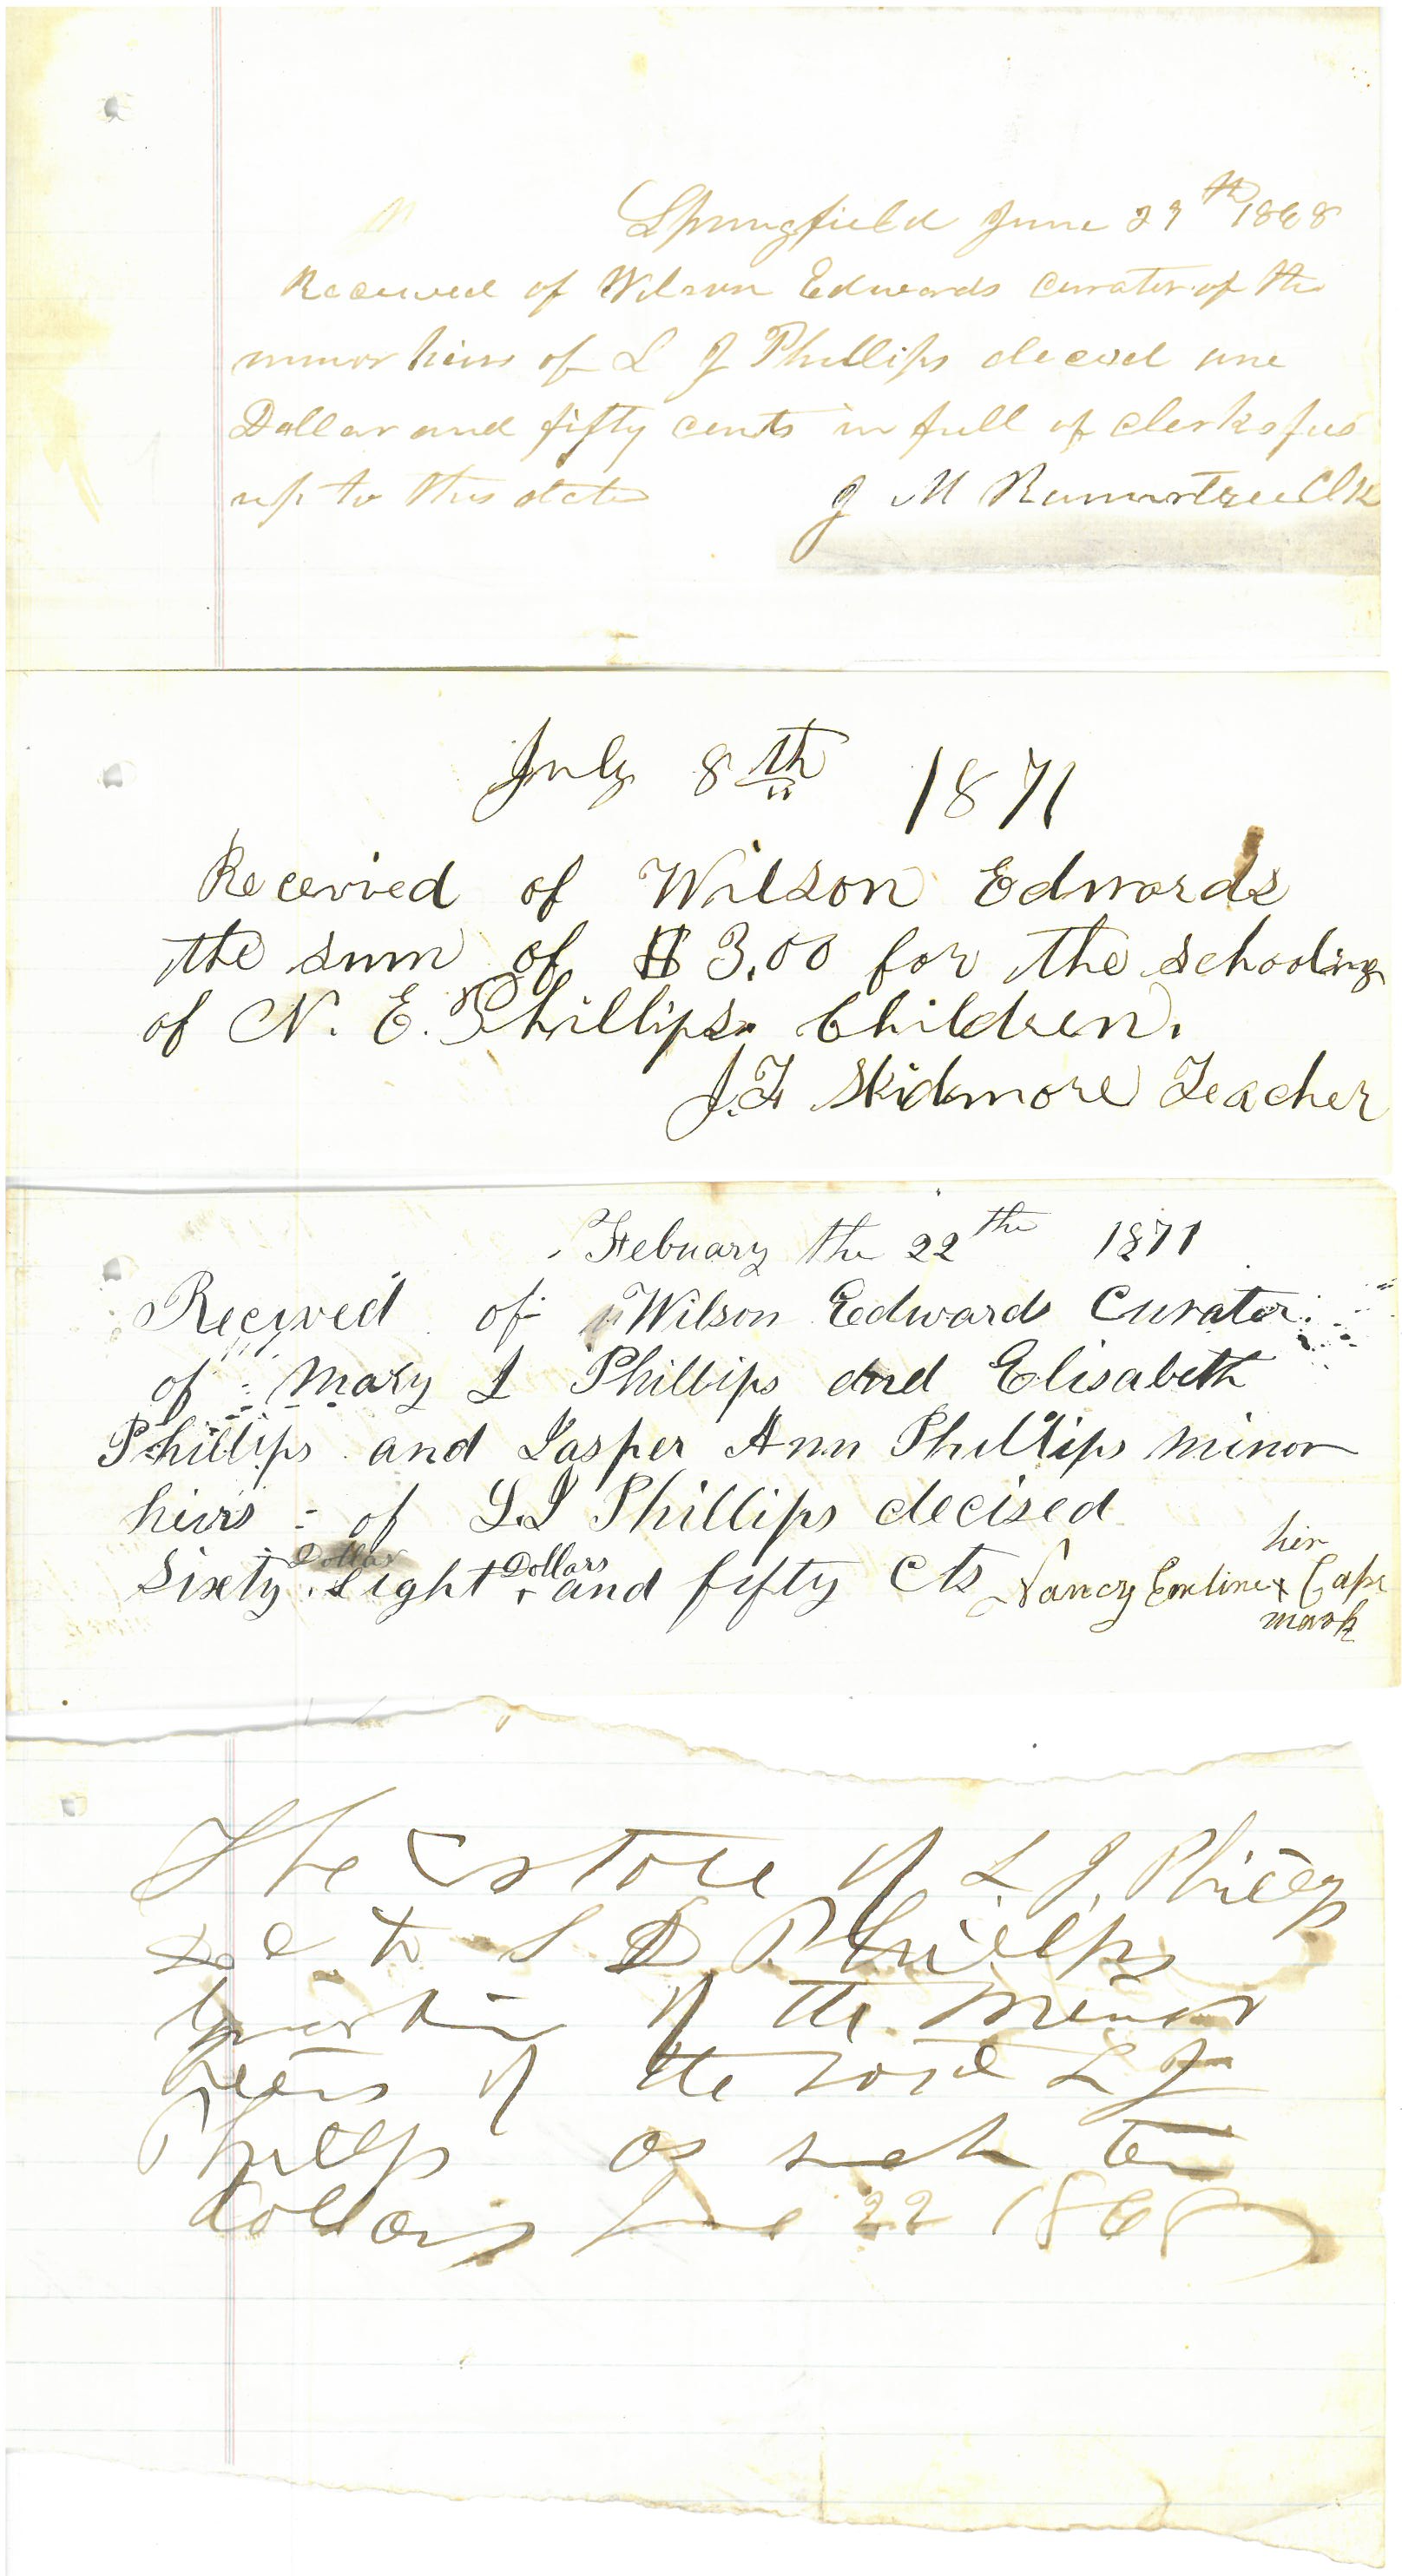 Springfield June 29th 1868
Received of Wilson Edwards curator of the
minor heirs of L J Phillips decesd one
Dollar and fifty cents in full of clerks fees
up to this date J M Rumortree Clk
July 8th 1871
Received of Wilson Edwards
the sum of $3.00 for the schooling
of N. E. Phillips Children.
J. F. Skidmore Teacher
Febuary the 22th 1871
Recived of Wilson Edward Curator
of Mary L Phillips and Elisabeth
Phillips and Jasper Ann Phillips minor
heirs of L.J Phillips decised
Sixty Eight Dollars and fifty cts Nancy Emline x Caps
her
mark
The Estate of L. J. Phillips
to S D Phillips
of the minor
heirs of the said L J
Phillips as such ten
dollars June 22 1868